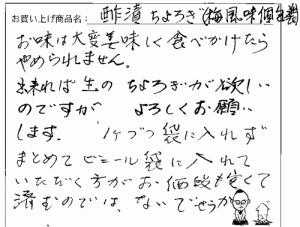 お買い上げ商品名: 酢漬ちょろぎ(梅風味個包装)
お味は大変美味しく食べかけたら
やめられません。
出来れば生のちょろぎが欲しい
のですが よろしくお願い
します。 1ケづつ袋に入れず
まとめてビニール袋に入れて
いただく方がお価段も安くて
済むのでは、ないでせうか